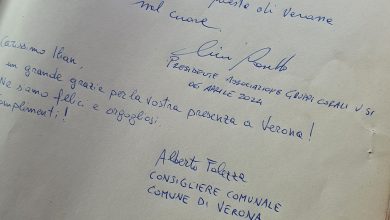 di Verona
nel cuore.
PRESIDENTE ASSOCIAZIONE GRUPPI CORALI V SI
06 APRILE 2024
Carissimo Ilian,
un grande grazie per la vostra presenza a Verona!
Ne siamo felici e orgogliosi.
omplimenti!
Alberto Falezza
CONSIGLIERE COMUNALE
COMUNE DI VERONA